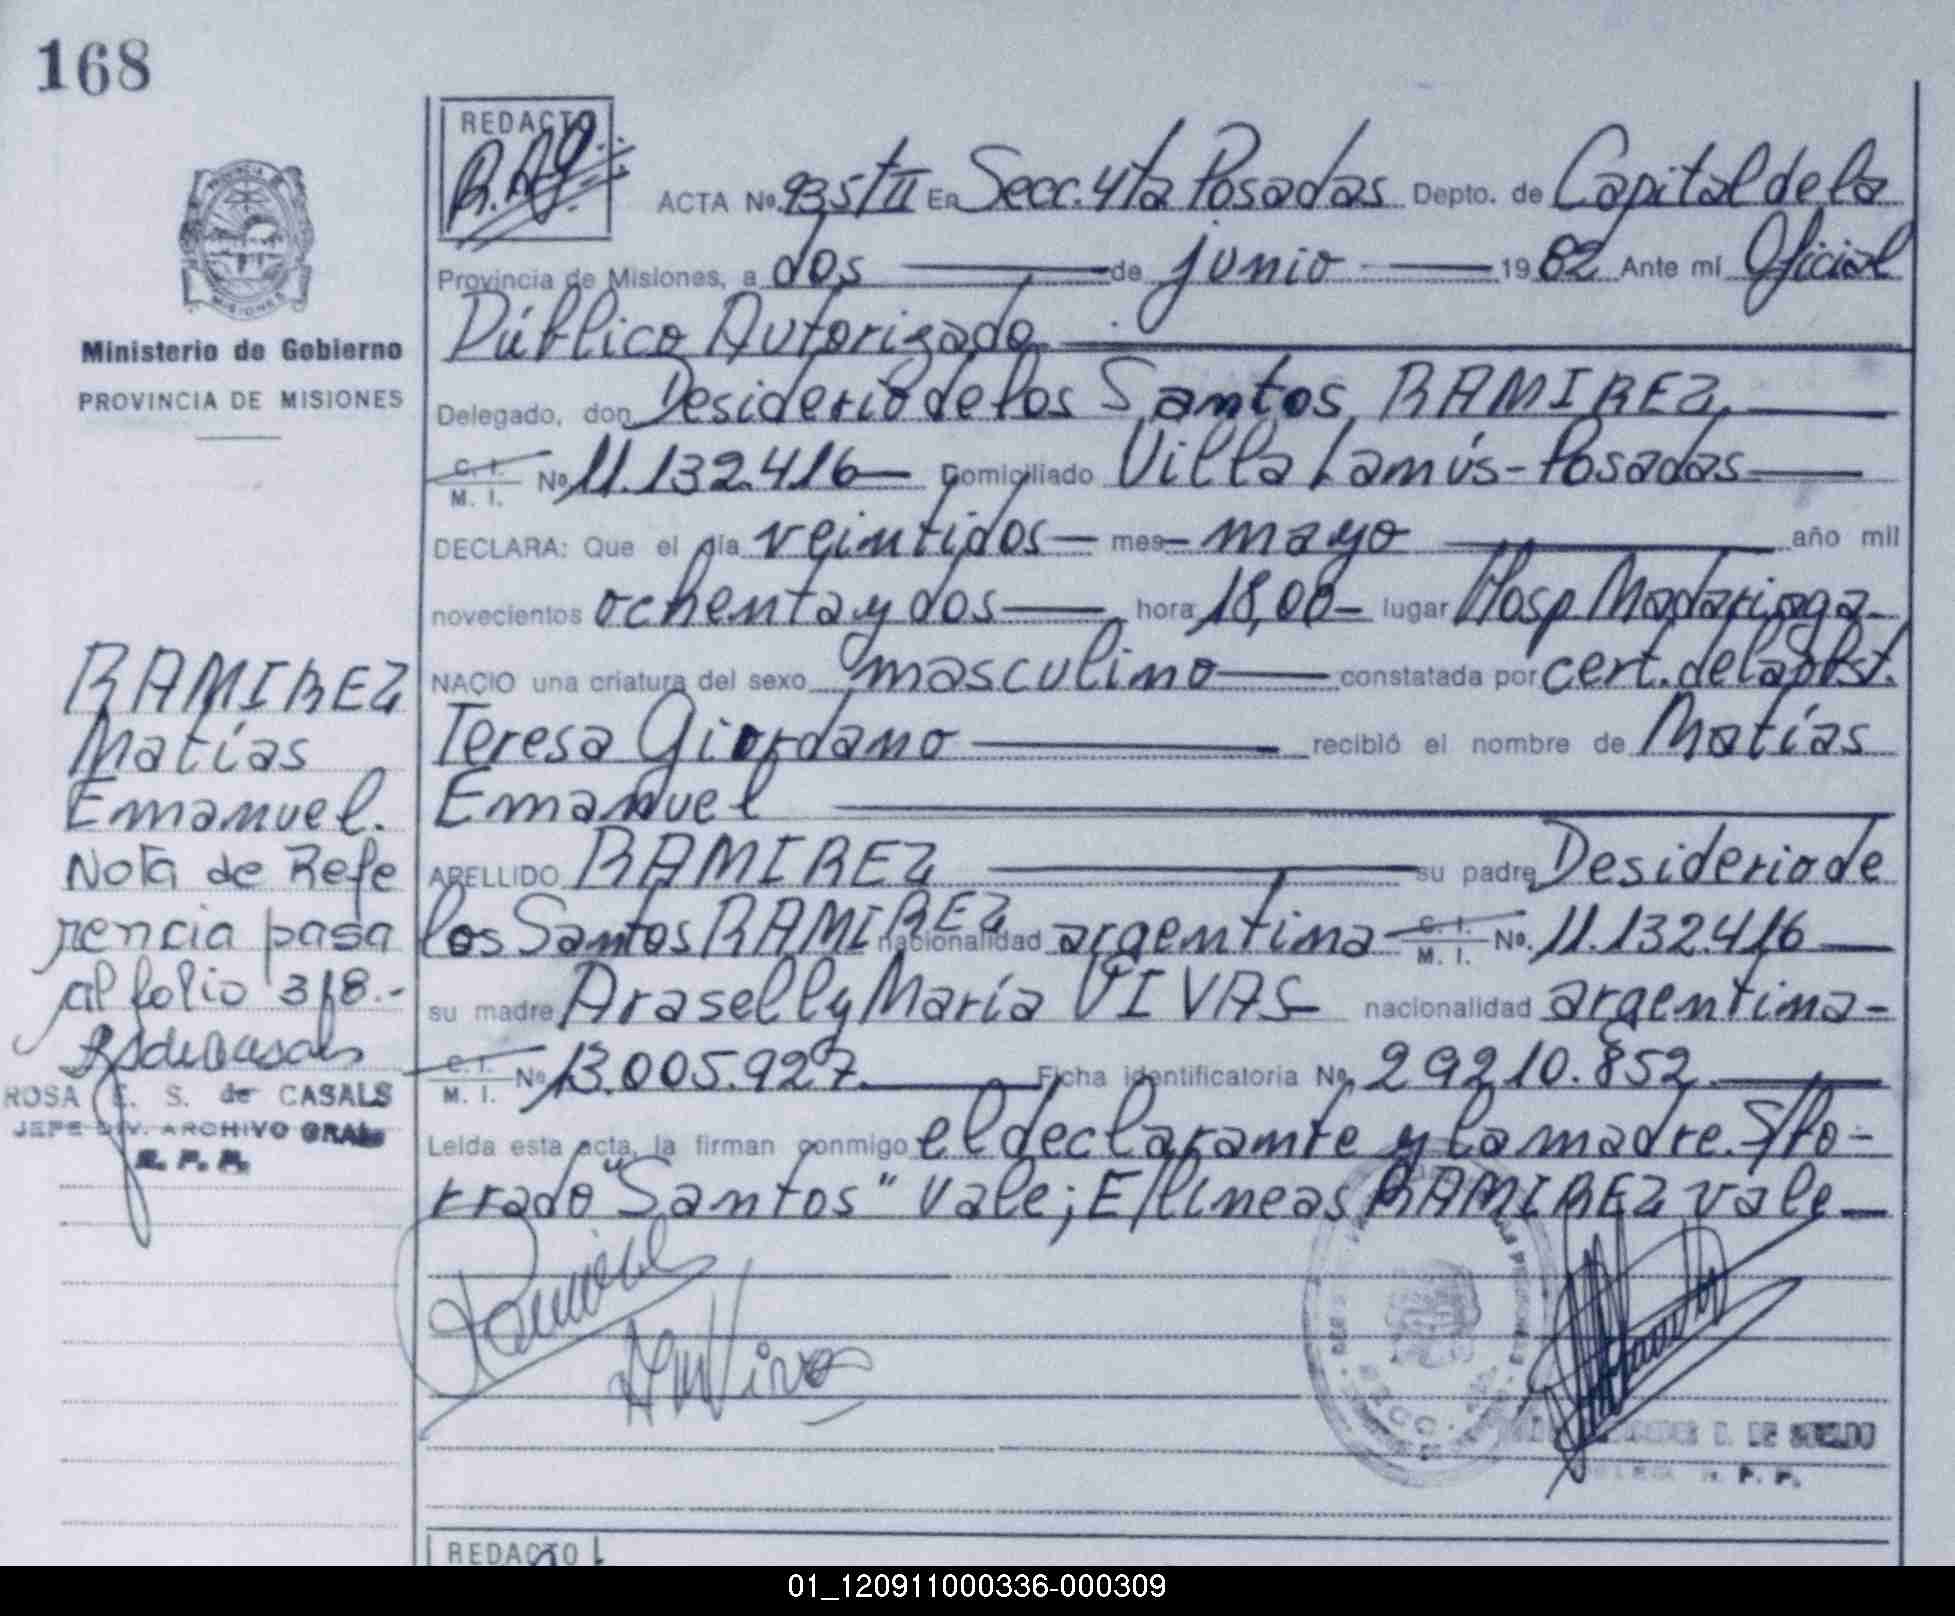 168
REDACTO
PROVINCIA
MISIONES
Ministerio de Gobierno
PROVINCIA DE MISIONES
RAMIREZ
Matías
Emanuel.
Nota de Refe
rencia pasa
al folio 318.-
ROSA E. S. de CASALS
JEFE DIV. ARCHIVO GRAL
R. P. P.
ACTA No. 935/II En Secc. 4ta Posadas Depto. de Capital de la
Provincia de Misiones, a dos de junio 1982 Ante mi Oficial
Público Autorizado
Delegado, don Desiderio de los Santos RAMIREZ,
C. I. M. I. No 11.132.416 Domiciliado Villa Lanús - Posadas
DECLARA: Que el día veintidos mes mayo año mil
novecientos ochenta y dos hora 18,00 lugar Hosp. Madariaga
NACIO una criatura del sexo masculino constatada por cert. de la Obst.
Teresa Giordano recibió el nombre de Matías
Emanuel
APELLIDO RAMIREZ su padre Desiderio de
los Santos RAMIREZ nacionalidad argentina C. I. M. I. No. 11.132.416
su madre Araselly María VIVAS nacionalidad argentina
C. I. M. I. No 13.005.927. Ficha identificatoria No. 29.210.852.
Leída esta acta, la firman conmigo el declarante y la madre. S/bo-
rrado "Santos" Vale; E/líneas RAMIREZ vale
DE SUELDO
R. P. P.
REDACTO
01_120911000336-000309